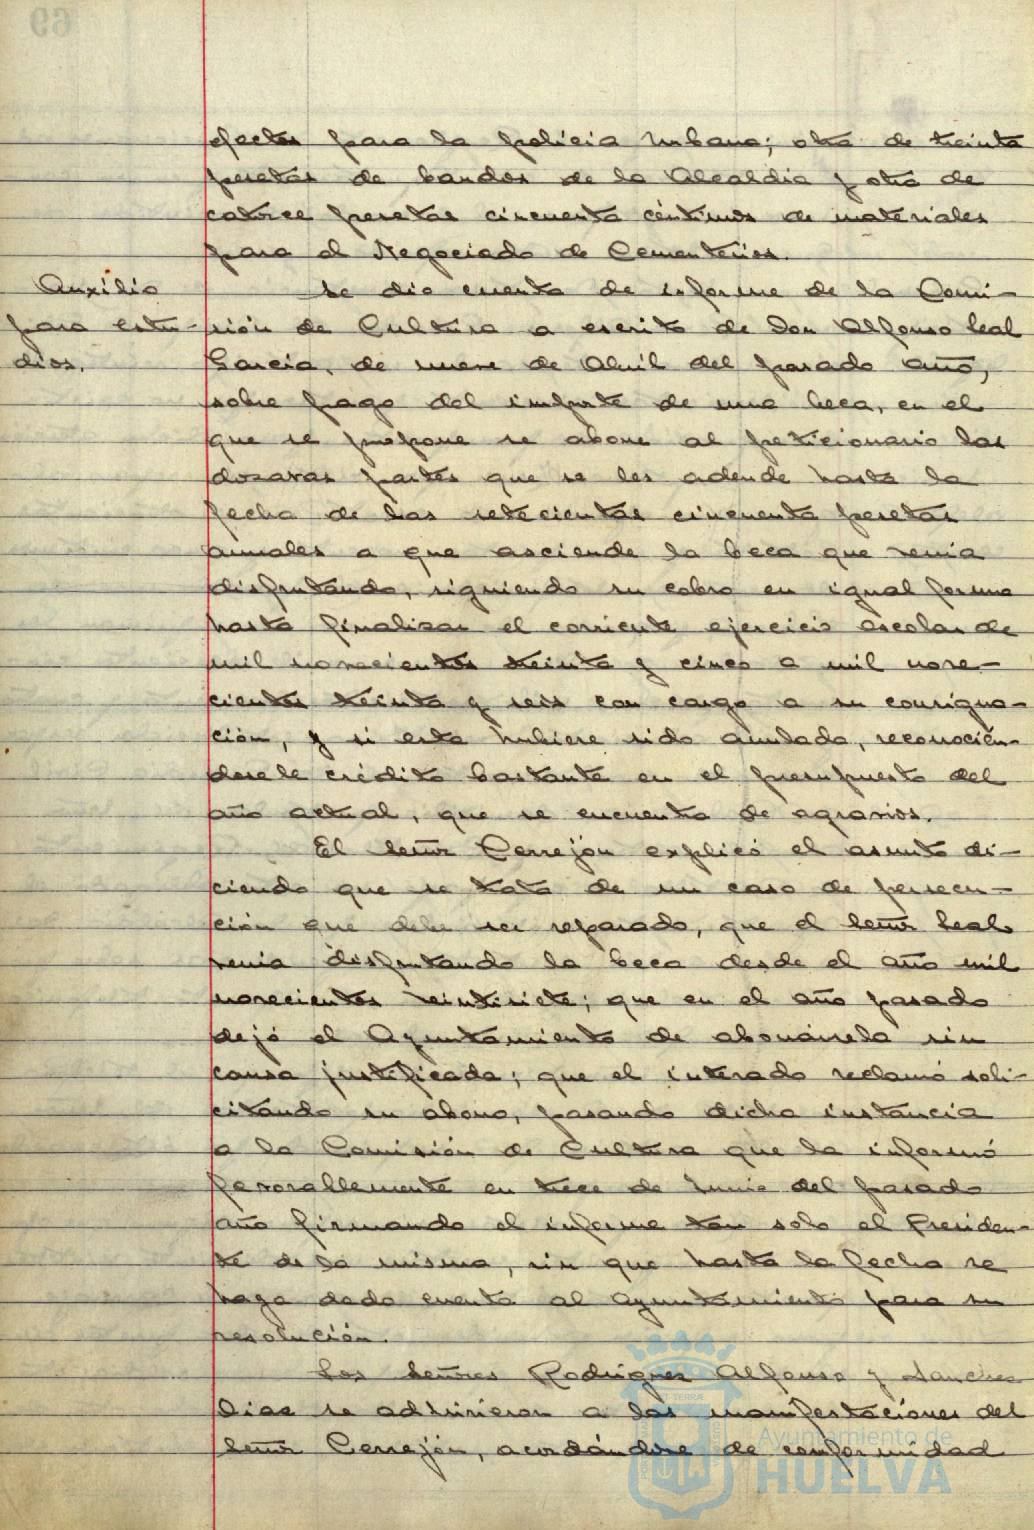 efectos para la policia Urbana; otra de treinta
pesetas de bandos de la Alcaldia y otra de
catorce pesetas cincuenta céntimos de materiales
para el Negociado de Cementerios.
Auxilio
para estu-
dios.
Se dio cuenta de informe de la Comi-
sión de Cultura a escrito de Don Alfonso Leal
Garcia, de nueve de Abril del pasado año,
sobre pago del importe de una beca, en el
que se propone se abone al peticionario las
dozavas partes que se les adeude hasta la
fecha de las setecientas cincuenta pesetas
anuales a que asciende la beca que venia
disfrutando, siguiendo su cobro en igual forma
hasta finalizar el corriente ejercicio escolar de
mil novecientos treinta y cinco a mil nove-
cientos treinta y seis con cargo a su consigna-
ción, y si esta hubiere sido anulada, reconocién-
dosele crédito bastante en el presupuesto del
año actual, que se encuentra de agravios.
El señor Cerrejón explicó el asunto di-
ciendo que se trata de un caso de persecu-
ción que debe ser reparado, que el señor Leal
venia disfrutando la beca desde el año mil
novecientos veintisiete; que en el año pasado
dejó el Ayuntamiento de abonársela sin
causa justificada; que el interado reclamó soli-
citando su abono, pasando dicha instancia
a la Comisión de Cultura que la informó
favorablemente en trece de Junio del pasado
año firmando el informe tan solo el Presiden-
te de la misma, sin que hasta la fecha se
haga dado cuenta al Ayuntamiento para su
resolución.
Los señores Rodriguez Alfonso y Sanchez
Diaz se adhirieron a las manifestaciones del
señor Cerrejón, acordándose de conformidad
Ayuntamiento de
HUELVA
69